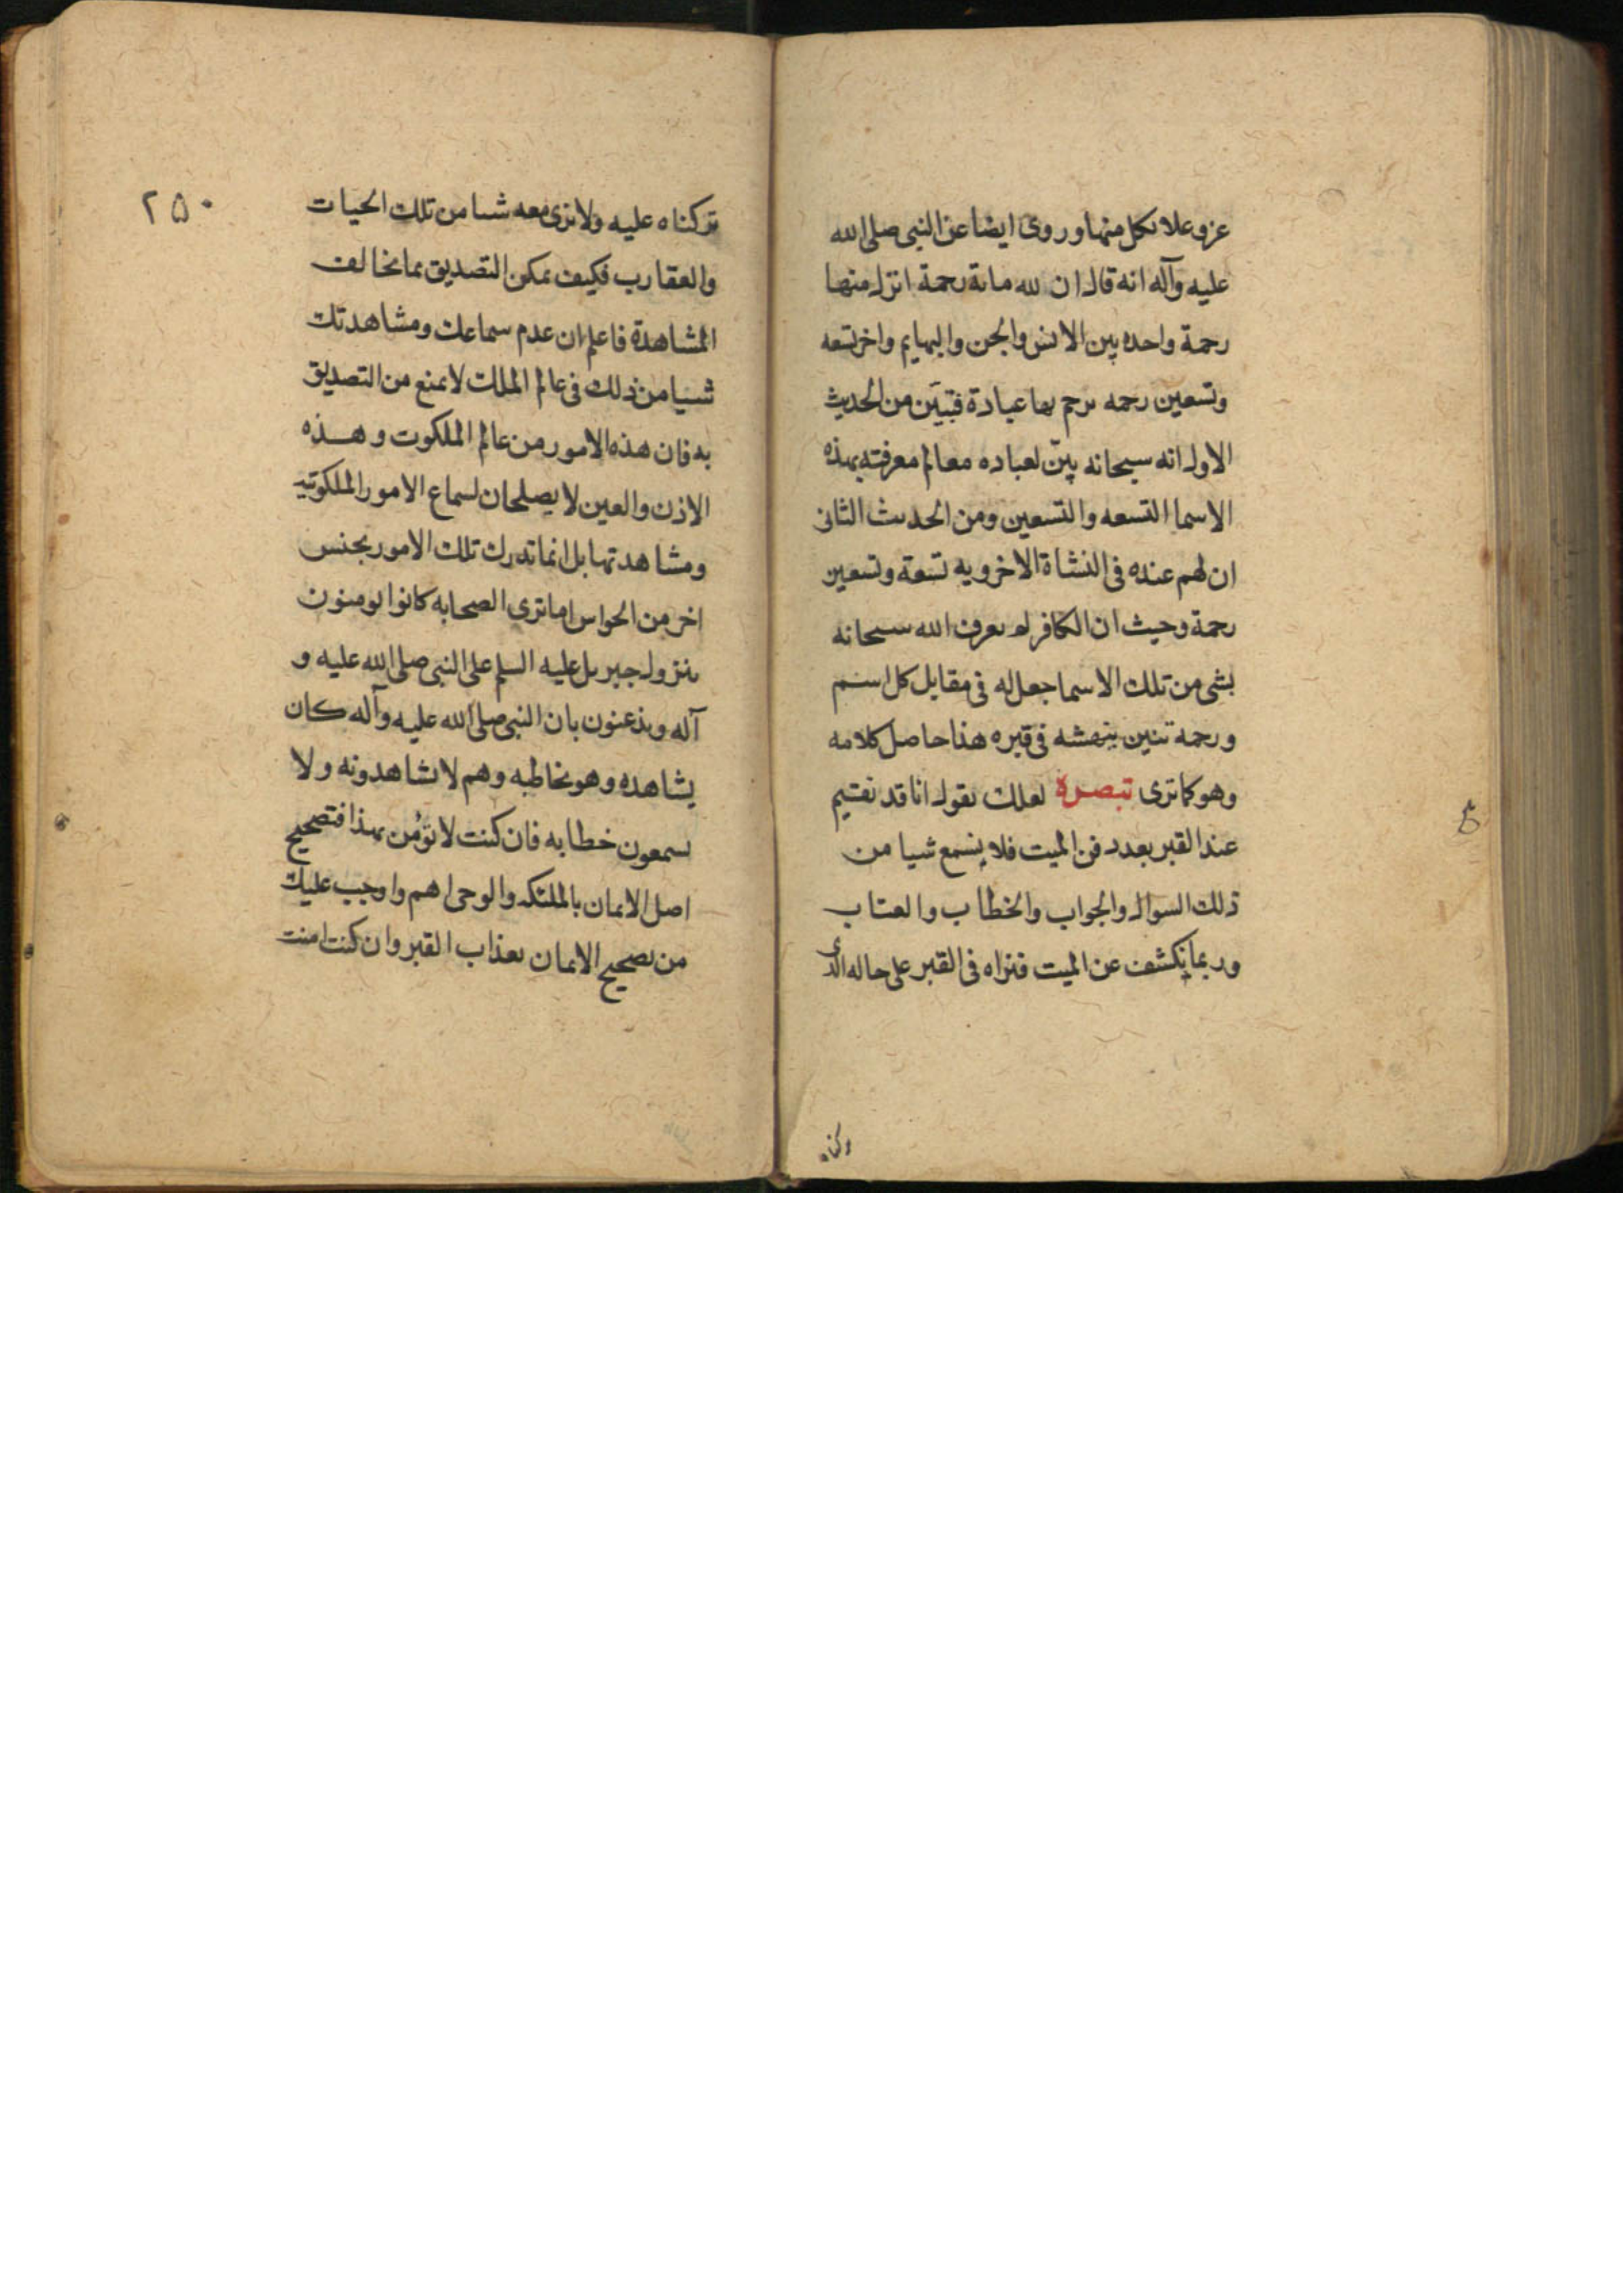 عز وعلا بكل منها وروى ايضا عن النبي صلى الله
عليه وآله انه قال ان لله مائة رحمة انزل منها
رحمة واحده بين الانس والجن والبهايم واخر تسعه
وتسعين رحمه يرحم بها عباده فتبيّن من الحديث
الاول انه سبحانه بيّن لعباده معالم معرفته بهذه
الاسما التسعه والتسعين ومن الحديث الثانى
ان لهم عنده فى النشاة الاخرويه تسعة وتسعين
رحمة وحيث ان الكافر لم يعرف الله سبحانه
بشى من تلك الاسما جعل له فى مقابل كل اسم
ورحمه تنين ينهشه فى قبره هذا حاصل كلامه
وهو كما ترى تبصرة لعلك تقول انا قد نقيم
عند القبر بعد دفن الميت فلا نسمع شيا من
ذلك السوال والجواب والخطاب والعتاب
وربما نكشف عن الميت فنراه فى القبر على حاله الذى
تركناه عليه ولا نرى معه شيا من تلك الحيات
والعقارب فكيف يمكن التصديق بما يخالف
المشاهدة فاعلم ان عدم سماعك ومشاهدتك
شيا من ذلك فى عالم الملك لا يمنع من التصديق
به فان هذه الامور من عالم الملكوت وهذه
الاذن والعين لا يصلحان لسماع الامور الملكوتيه
ومشاهدتها بل انما تدرك تلك الامور بجنس
اخر من الحواس اما ترى الصحابه كانوا يومنون
بنزول جبريل عليه السلم على النبي صلى الله عليه و
آله ويذعنون بان النبي صلى الله عليه وآله كان
يشاهده وهو يخاطبه وهم لا يشاهدونه ولا
يسمعون خطابه فان كنت لا تؤمن بهذا فتصحيح
اصل الايمان بالملئكه والوحى اهم واوجب عليك
من تصحيح الايمان بعذاب القبر وان كنت امنت
٢٥٠